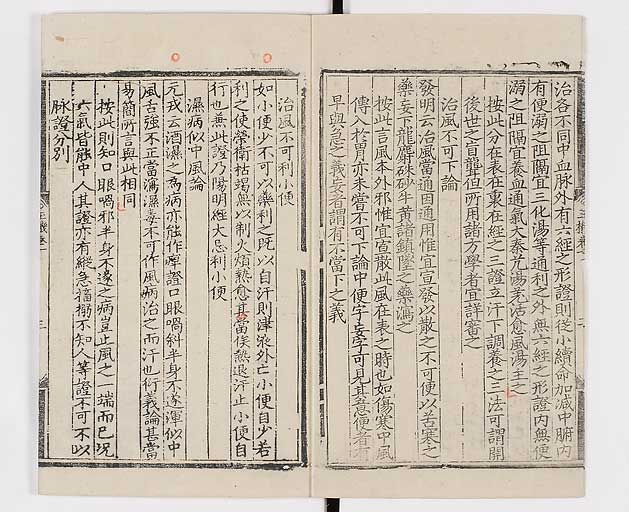 治各不同中血脉外有六經之形證則從小續命加减中腑内
有便溺之阻隔宜三化湯等通利之外無六經之形證内無便
溺之阻隔宜養血通氣大秦艽湯羌活愈風湯主之
按此分在表在裏在經之三證立汗下調養之三法可謂開
後世之盲聾但所用諸方學者宜詳審之
治風不可下論
發明云治風當通因通用惟宜宣發以散之不可便以苦寒之
藥妄下龍麝硃砂牛黄諸鎮墜之藥瀉之
按此言風本外邪惟宜宣散此風在表之時也如傷寒中風
傳入於胃亦未嘗不可下論中便字妄字可見其意便者有
早與急之義妄者謂有不當下之義
治風不可利小便
如小便少不可以藥利之既以自汗則津液外亡小便自少若
利之使榮衛枯竭無以制火煩熱愈甚當俟熱退汗止小便自
行也兼此證乃陽明經大忌利小便
濕病似中風論
元戎云酒濕之為病亦能作痺證口眼喎斜半身不遂渾似中
風舌強不正當瀉濕毒不可作風病治之而汗也衍義論甚當
易簡所言與此相同
按此則知口眼喎邪半身不遂之病豈止風之一端而已况
六氣皆能中人其證亦有縱急搐搦不知人等證不可不以
脉證分別